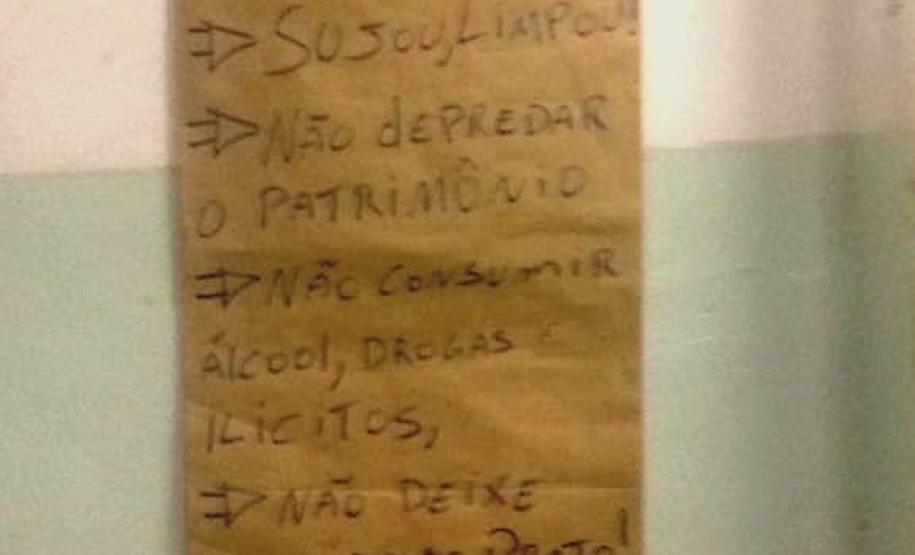 ⇒ SUJOU, LIMPOU!
⇒ NÃO dEPREDAR
O PATRIMÔNIO
⇒ NÃO CONSUMIR
ÁLCOOl, DROGAS E
ILÍCITOS,
⇒ NÃO DEIXE